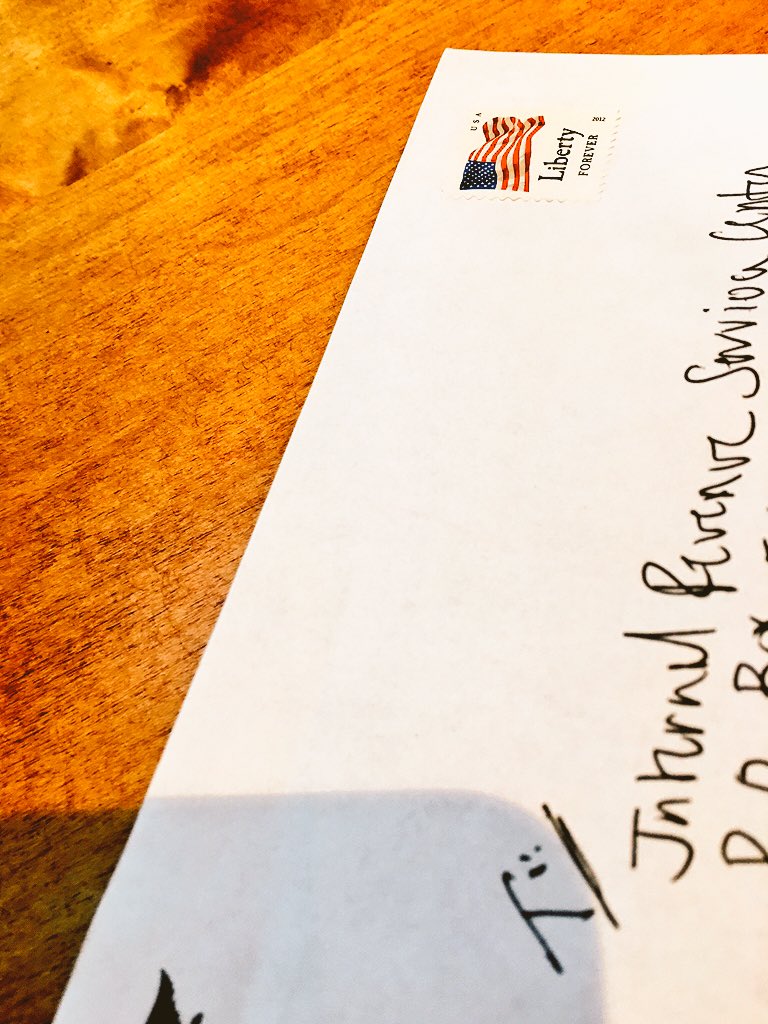 USA
2012
Liberty
FOREVER
To:
Internal Revenue Service Center
P.O. Box